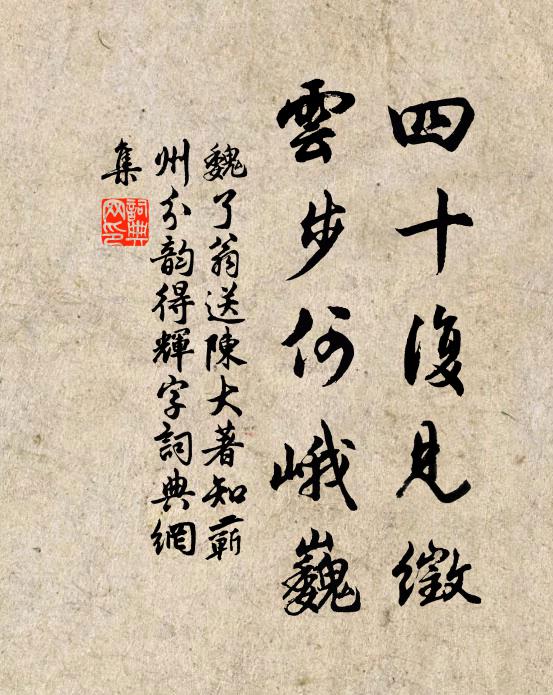 四十復見徵
雲步何峨巍
魏了翁送陳大著知蘄
州分韵得輝字詞典網
集
詞典
网印